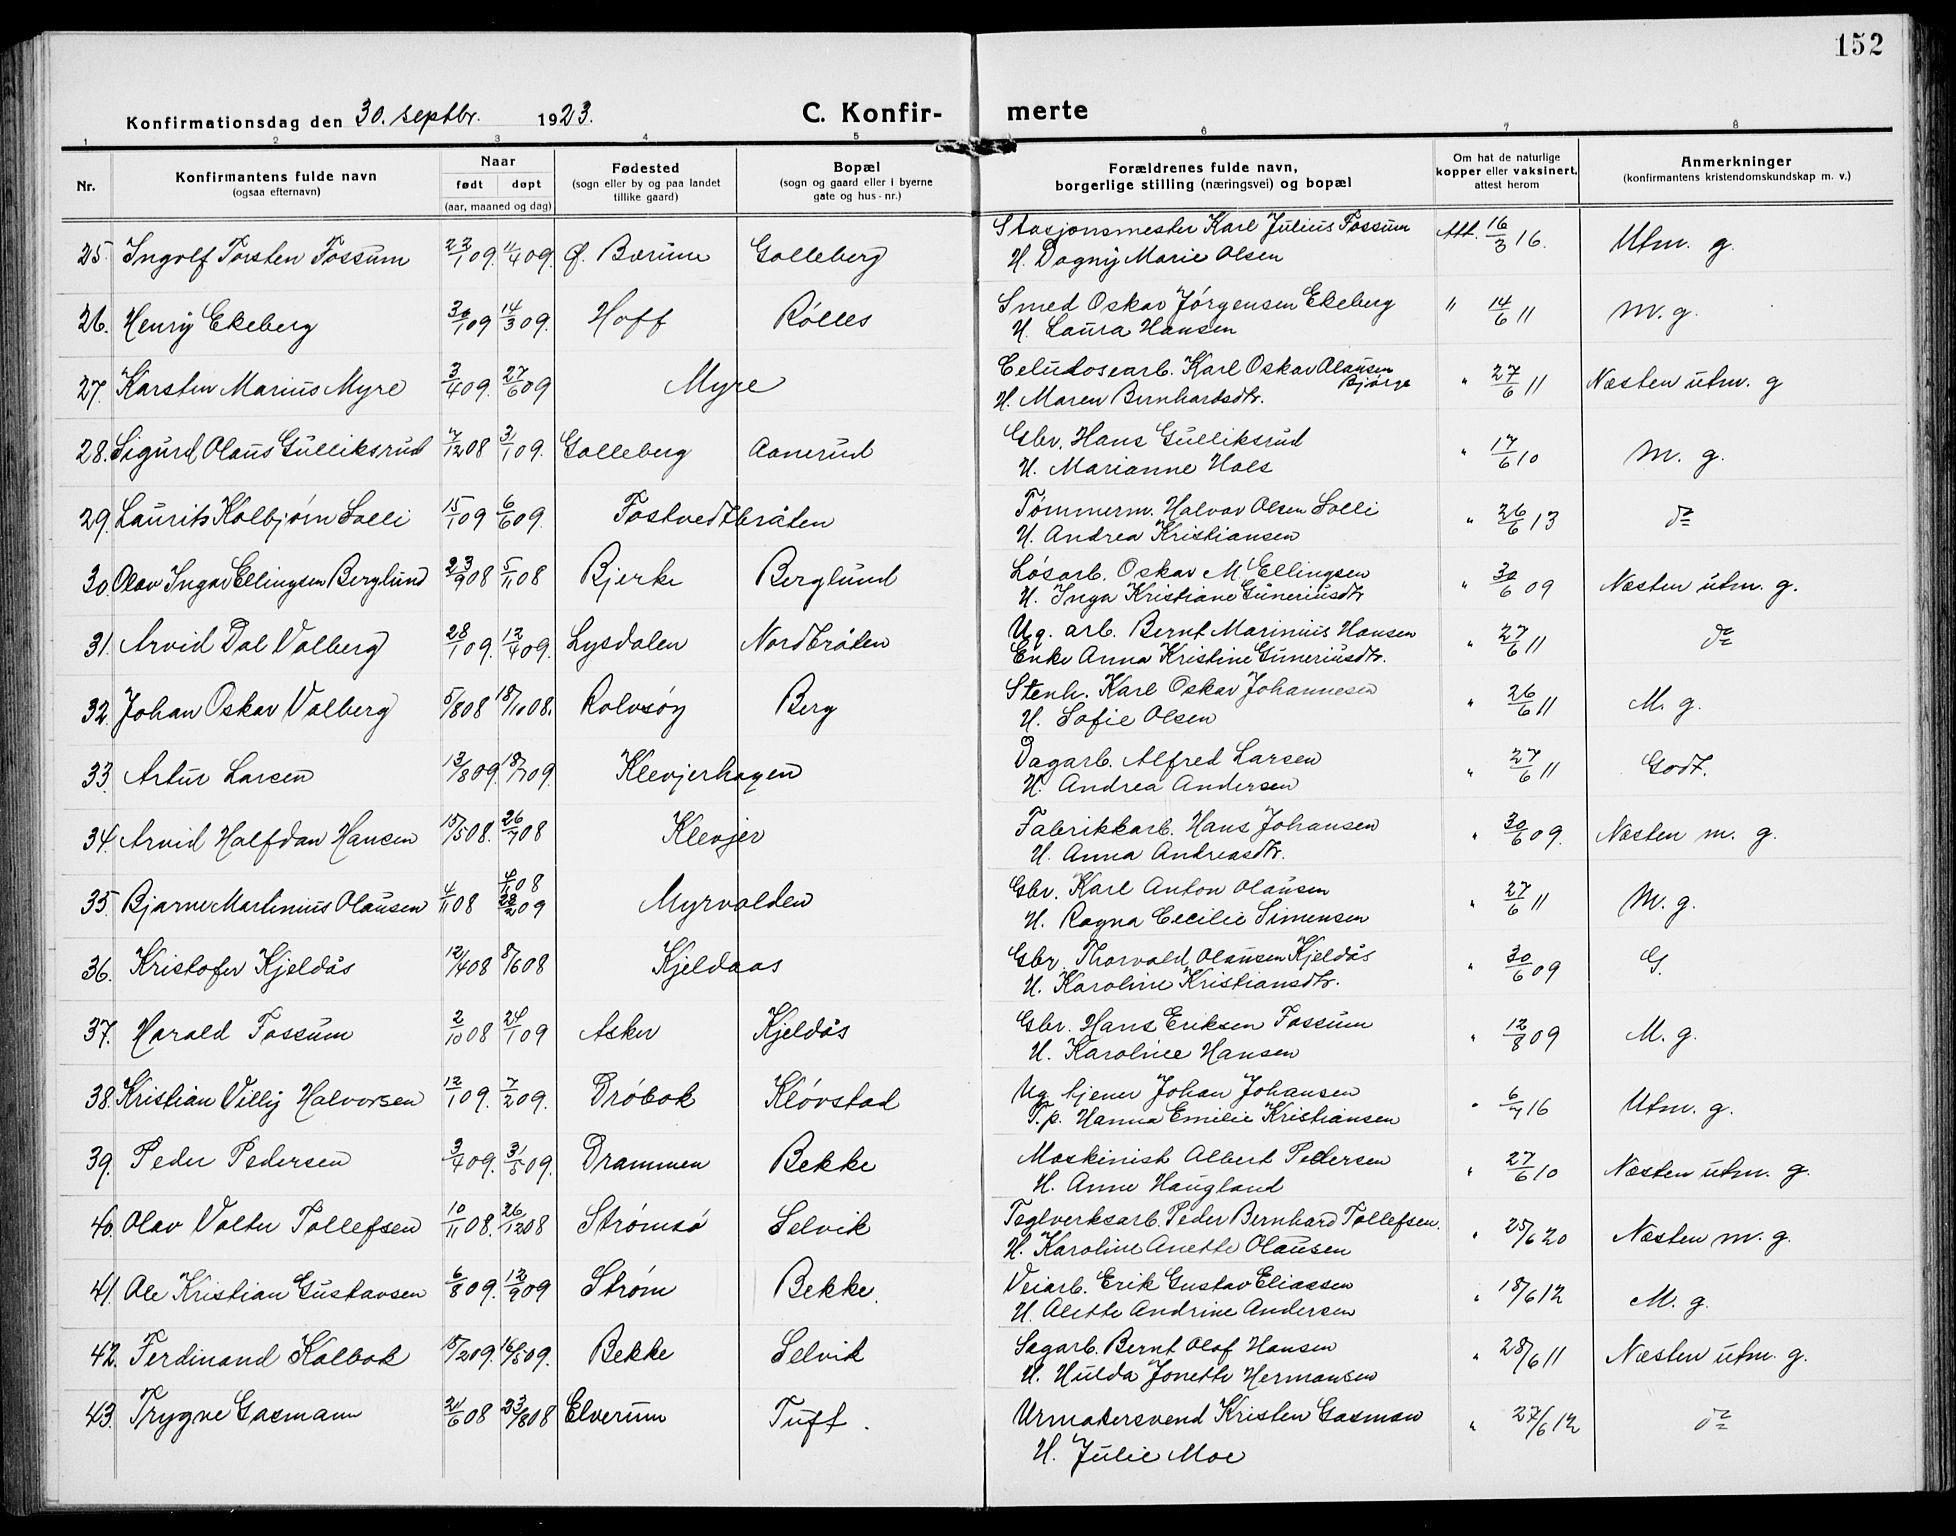 152
Konfirmationsdag den 30. septbr. 1923. C. Konfir- merte
1 2 3 4 5 6 7 8
Nr. Konfirmantens fulde navn (ogsaa efternavn) Naar født døpt (aar, maaned og dag) Fødested (sogn eller by og paa landet tillike gaard) Bopæl (sogn og gaard eller i byerne gate og hus-nr.) Forældrenes fulde navn, borgerlige stilling (næringsvei) og bopæl Om hat de naturlige kopper eller vaksinert, attest herom Anmerkninger (konfirmantens kristendomskundskap m. v.)
25. Ingolf Torsten Fossum 22/1 09. 11/4 09. Ø. Bærum Galleberg Stasjonsmester Karl Julius Fossum Att. 16/3 16. Utm. g.
H. Dagny Marie Olsen
26. Henry Ekeberg 30/1 09 14/3 09. Hoff Rølles Smed Oskar Jørgensen Ekeberg " 14/6 11 M. g.
H. Laura Hansen
27. Karsten Marius Myre 3/4 09. 27/6 09 Myre Celulosearb. Karl Oskar Olausen Bjørge " 27/6 11 Næsten utm. g
H. Maren Bernhardsdtr.
28. Sigurd Olaus Gulliksrud 7/12 08 31/1 09. Galleberg Aanerud Gbr. Hans Gulliksrud " 17/6 10 M. g.
H. Marianne Hals
29. Laurits Kolbjørn Solli 15/1 09 6/6 09. Tostvedtbråten Tømmerm. Halvor Olsen Solli " 26/6 13 do
H. Andrea Kristiansen
30. Olav Ingar Ellingsen Berglund 23/9 08 5/11 08 Bjerke Berglund Løsarb. Oskar M. Ellingsen " 30/6 09 Næsten utm. g.
H. Inga Kristiane Guneriusdtr
31. Arvid Dal Valberg 28/1 09. 12/4 09. Lysdalen Nordbråten Ug. arb. Bernt Marinius Hansen " 27/6 11 do
Enke Anna Kristine Guneriusdtr.
32. Johan Oskar Valberg 5/8 08 18/10 08. Rolvsøy Berg Stenh. Karl Oskar Johannesen " 26/6 11 M. g.
H. Sofie Olsen
33. Artur Larsen 13/8 09. 18/7 09. Klevjerhagen Dagarb. Alfred Larsen " 27/6 11 Godt.
H. Andrea Andersen
34. Arvid Halfdan Hansen 15/5 08. 26/7 08 Klevjer Fabrikkarb. Hans Johansen " 30/6 09. Næsten m. g.
H. Anna Andreasdtr.
35. Bjarne Martinius Olausen 4/11 08 4/11 08 28/2 09 Myrvolden Gbr. Karl Anton Olausen " 27/6 11 M. g.
H. Ragna Cecilie Simensen
36. Kristofer Kjeldås 12/4 08 8/6 08 Kjeldaas Gbr. Thorvald Olausen Kjeldås " 30/6 09 G.
H. Karoline Kristiansdtr.
37. Harald Fossum 2/10 08 24/1 09 Asker Kjeldås Gbr. Hans Eriksen Fossum " 12/8 09 M. g.
H. Karoline Hansen
38. Kristian Villy Halvorsen 12/1 09. 7/2 09. Drøbak Kløvstad Ug. tjener Johan Johansen " 6/7 16 Utm. g.
T. p. Hanna Emilie Kristiansen
39. Peder Pedersen 3/4 09. 31/5 09. Drammen Bekke Maskinist Albert Pedersen " 27/6 10 Næsten utm. g.
H. Anne Haugland
40. Olav Valter Tollefsen 10/11 08. 26/12 08 Strømsø Selvik Teglverksarb. Peder Bernhard Tollefsen. " 25/6 20 Næsten m. g.
H. Karoline Anette Olausen
41. Ole Kristian Gustavsen 6/8 09. 12/9 09 Strøm Bekke. Veiarb. Erik Gustav Eliassen " 18/6 12 M. g.
H. Alette Andrine Andersen
42. Ferdinand Kolbok 15/2 09. 16/5 09. Bekke Selvik Sagarb. Bernt Olaf Hansen " 28/6 11 Næsten utm. g.
H. Hulda Jonette Hermansen
43. Trygve Gasmann 21/6 08 23/8 08 Elverum Tuft. Urmakersvend Kristen Gasman " 27/6 12 do
H. Julie Moe